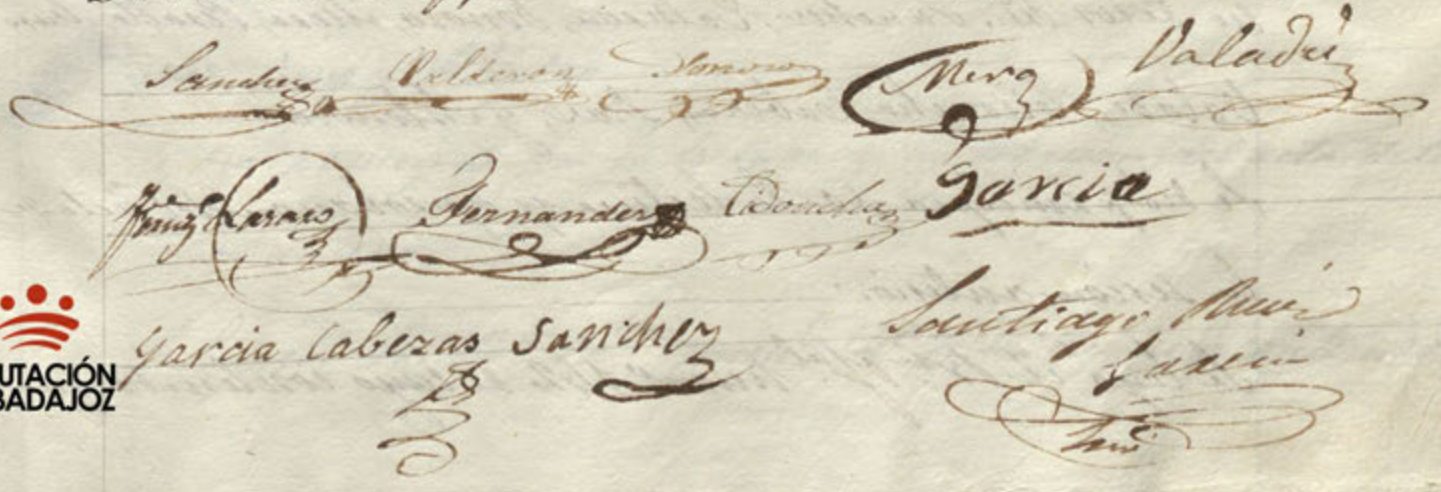 Sanchez Calderon Romero Mera Valadés
Lazaro Fernandez Cidoncha Garcia
Garcia Cabezas Sanchez
Santiago Ruiz
Garcia
Srio
UTACIÓN
BADAJOZ